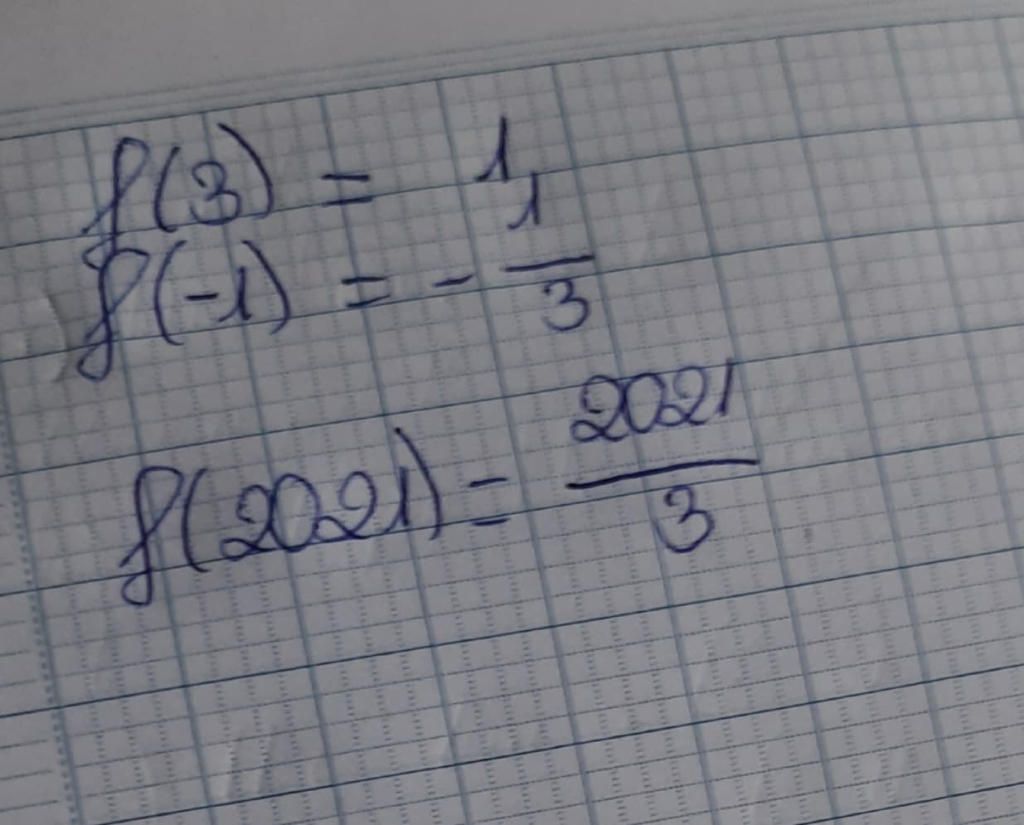 f(3) = 1
f(-1) = - 1/3
f(2021) = 2021/3